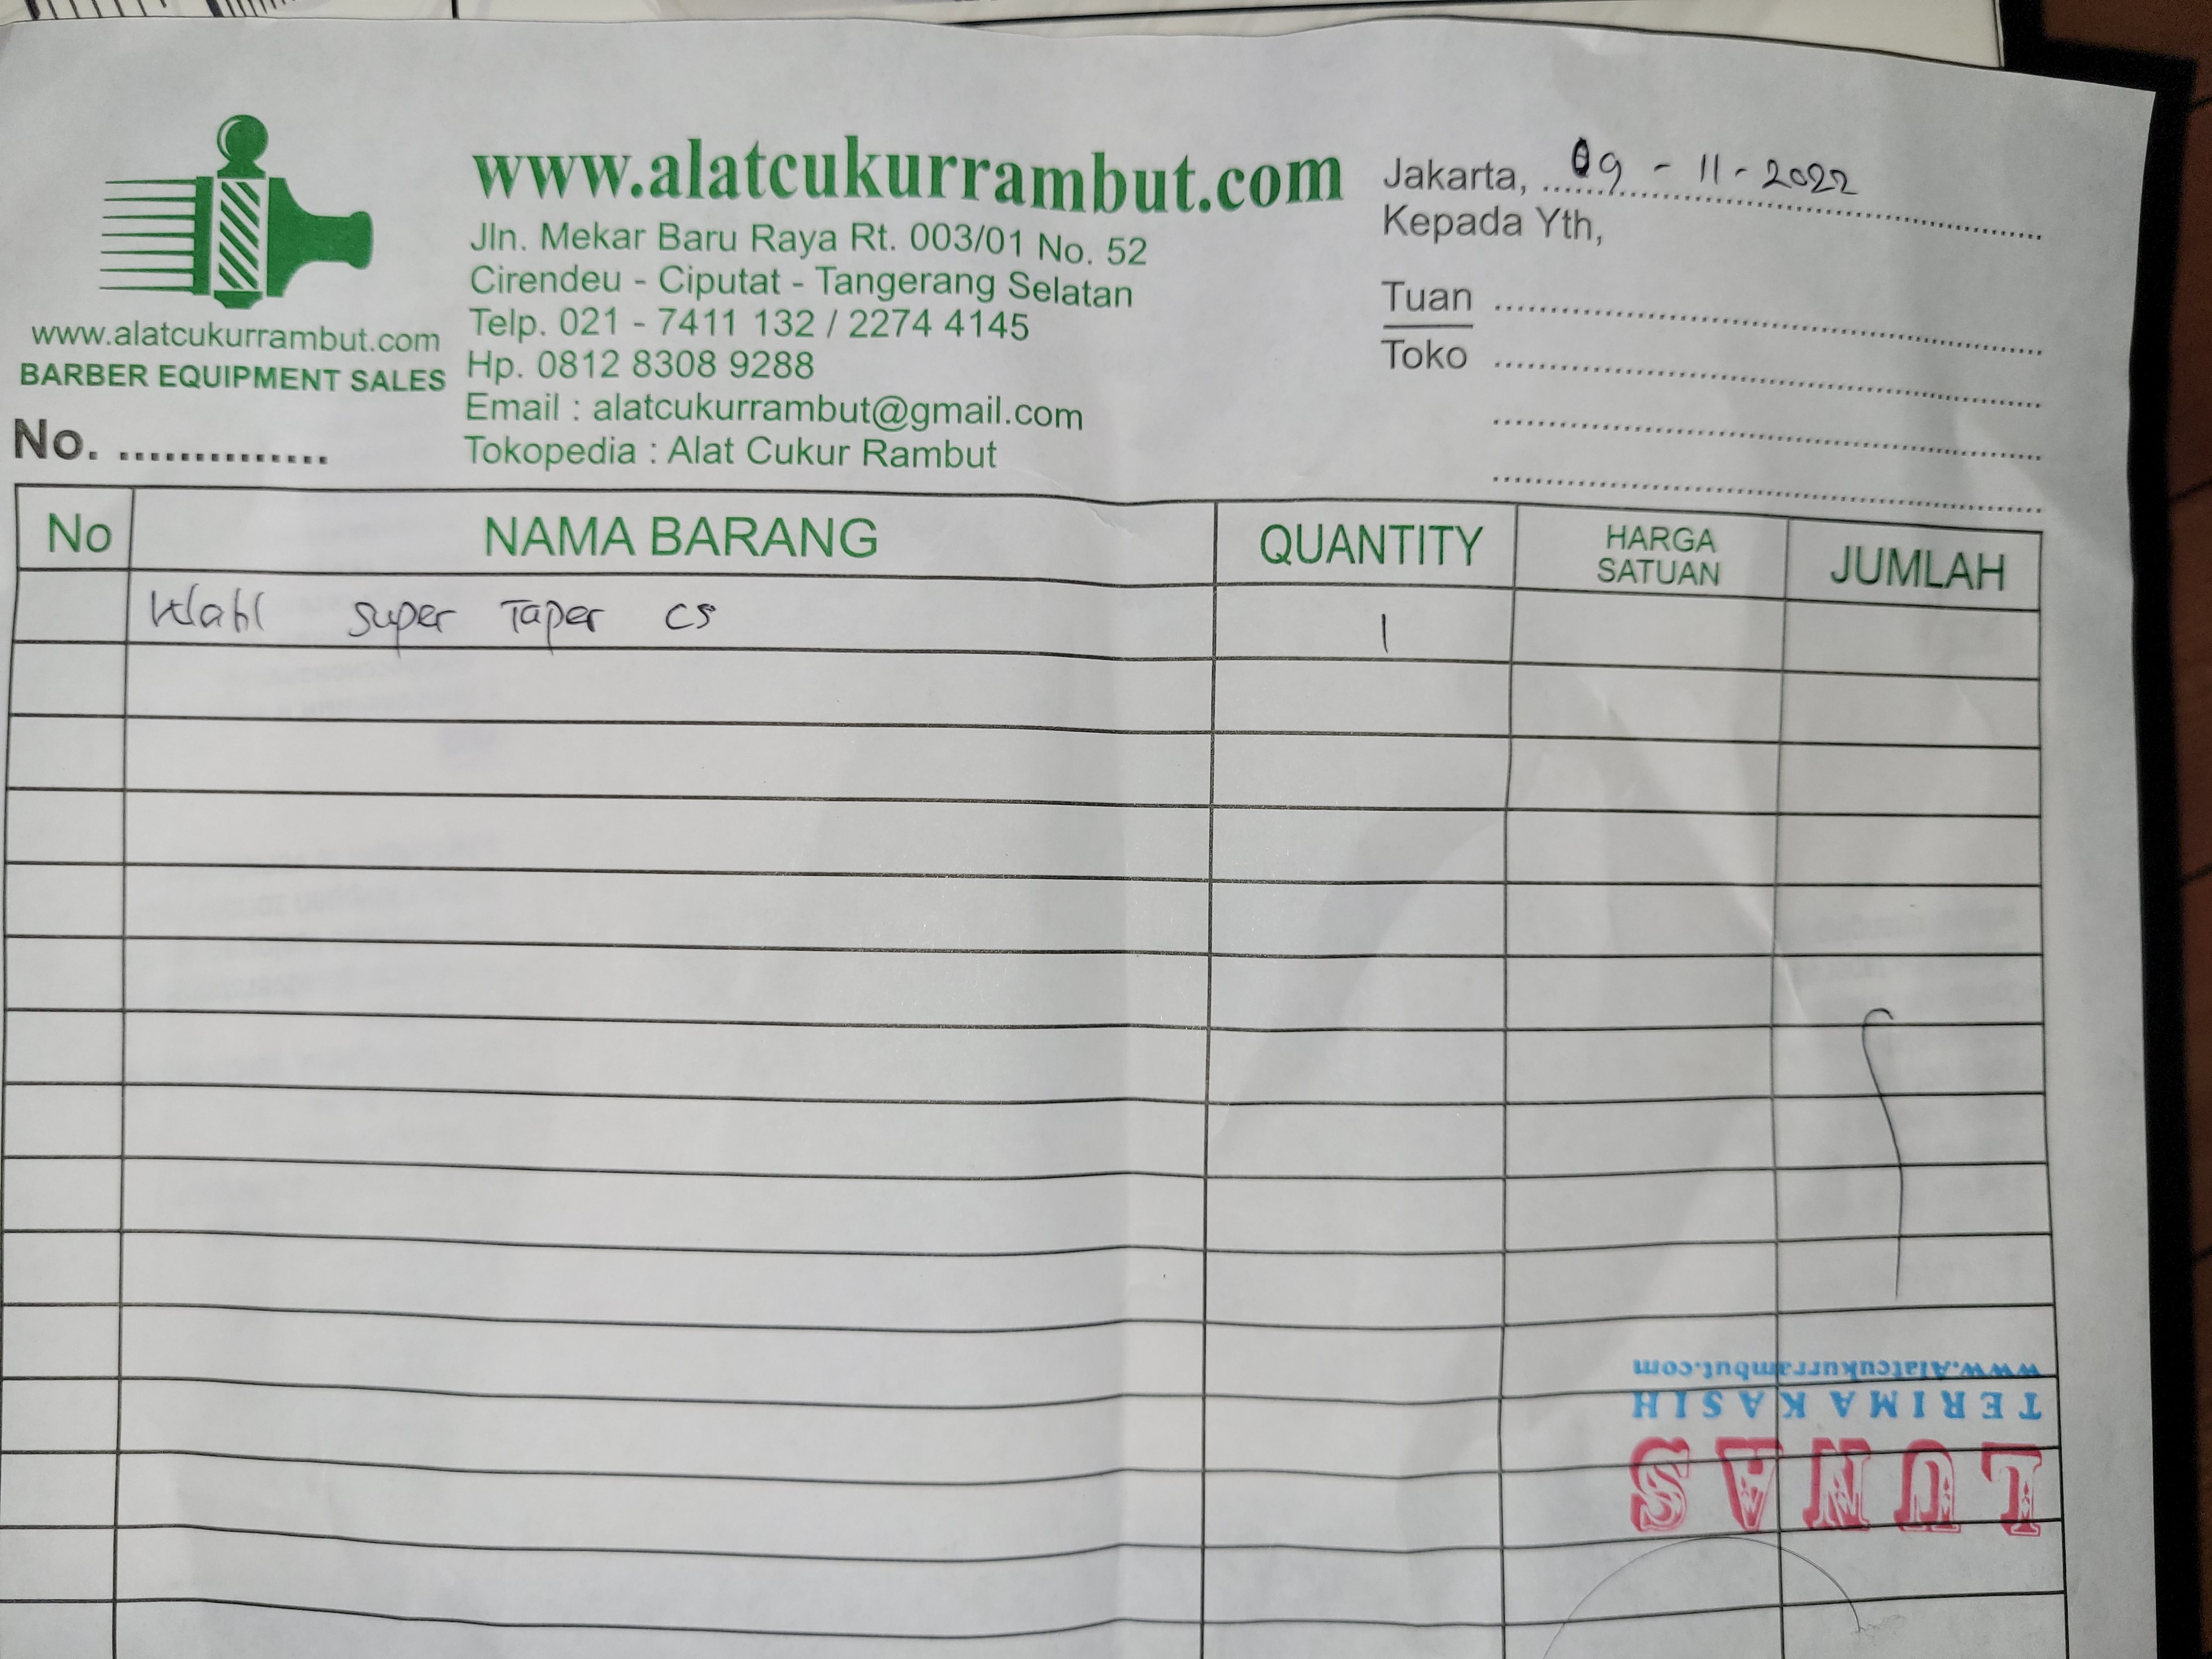 www.alatcukurrambut.com
BARBER EQUIPMENT SALES
www.alatcukurrambut.com
Jln. Mekar Baru Raya Rt. 003/01 No. 52
Cirendeu - Ciputat - Tangerang Selatan
Telp. 021 - 7411 132 / 2274 4145
Hp. 0812 8308 9288
Email : alatcukurrambut@gmail.com
Tokopedia : Alat Cukur Rambut
Jakarta, 09 - 11 - 2022
Kepada Yth,
Tuan
Toko
No. ............
No NAMA BARANG QUANTITY HARGA SATUAN JUMLAH
Wahl Super Taper CS 1
www.Alatcukurrambut.com
TERIMA KASIH
LUNAS